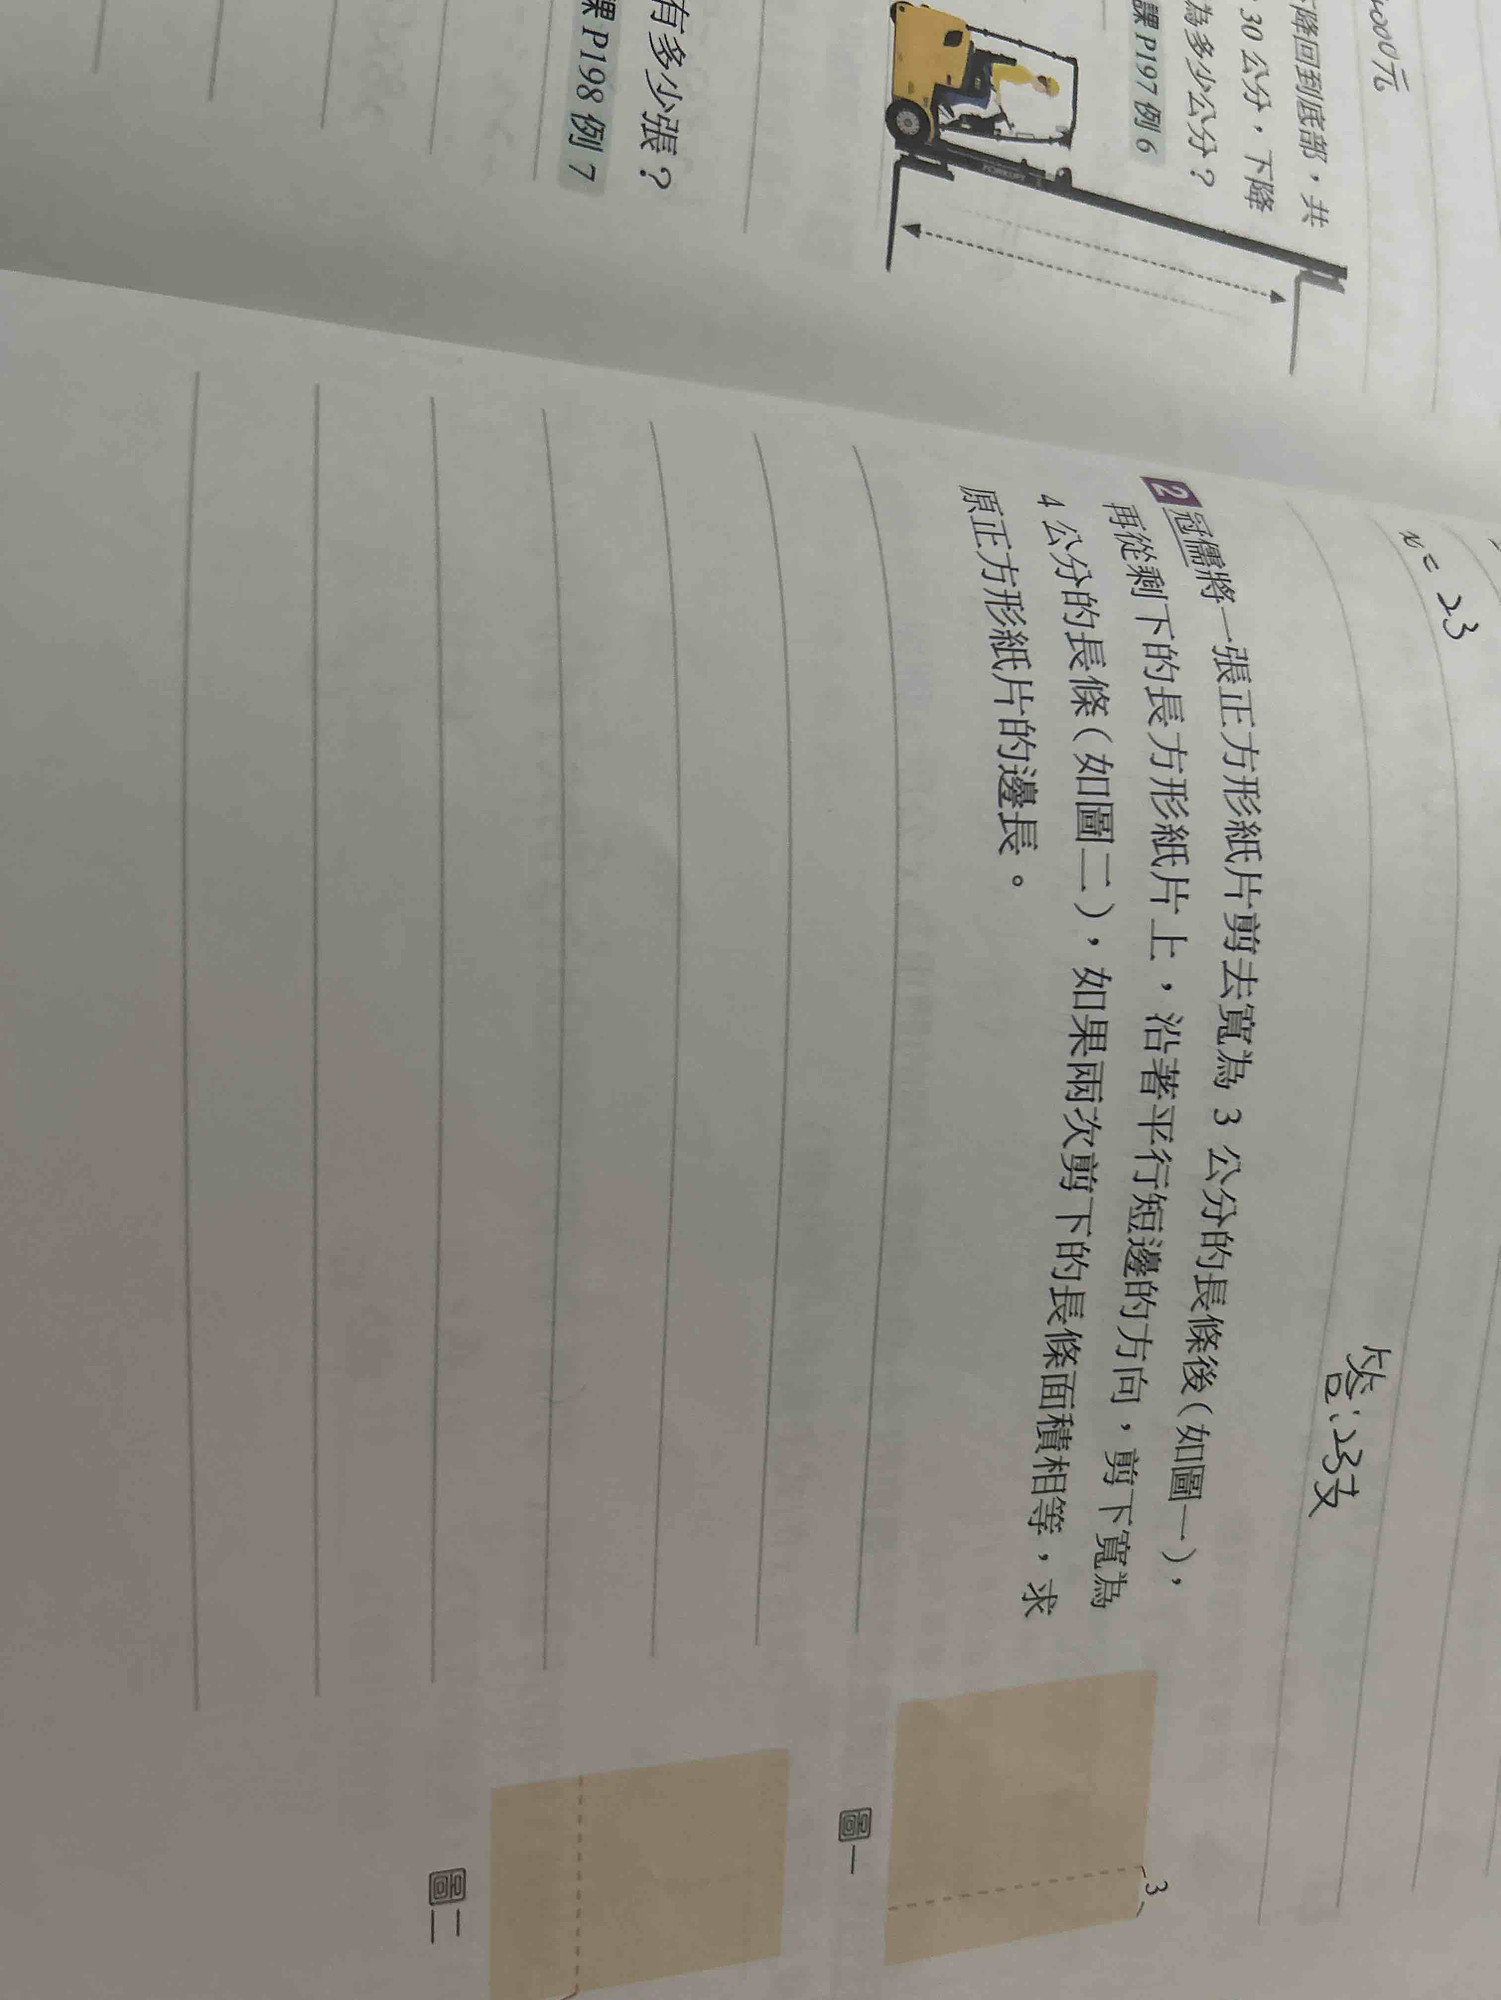 4000元
下降回到底部，共
30 公分，下降
為多少公分？
課 P197 例 6
有多少張？
課 P198 例 7
x = 23
答：23支
2 冠儒將一張正方形紙片剪去寬為 3 公分的長條後（如圖一），
再從剩下的長方形紙片上，沿著平行短邊的方向，剪下寬為
4 公分的長條（如圖二），如果兩次剪下的長條面積相等，求
原正方形紙片的邊長。
3
圖一
圖二